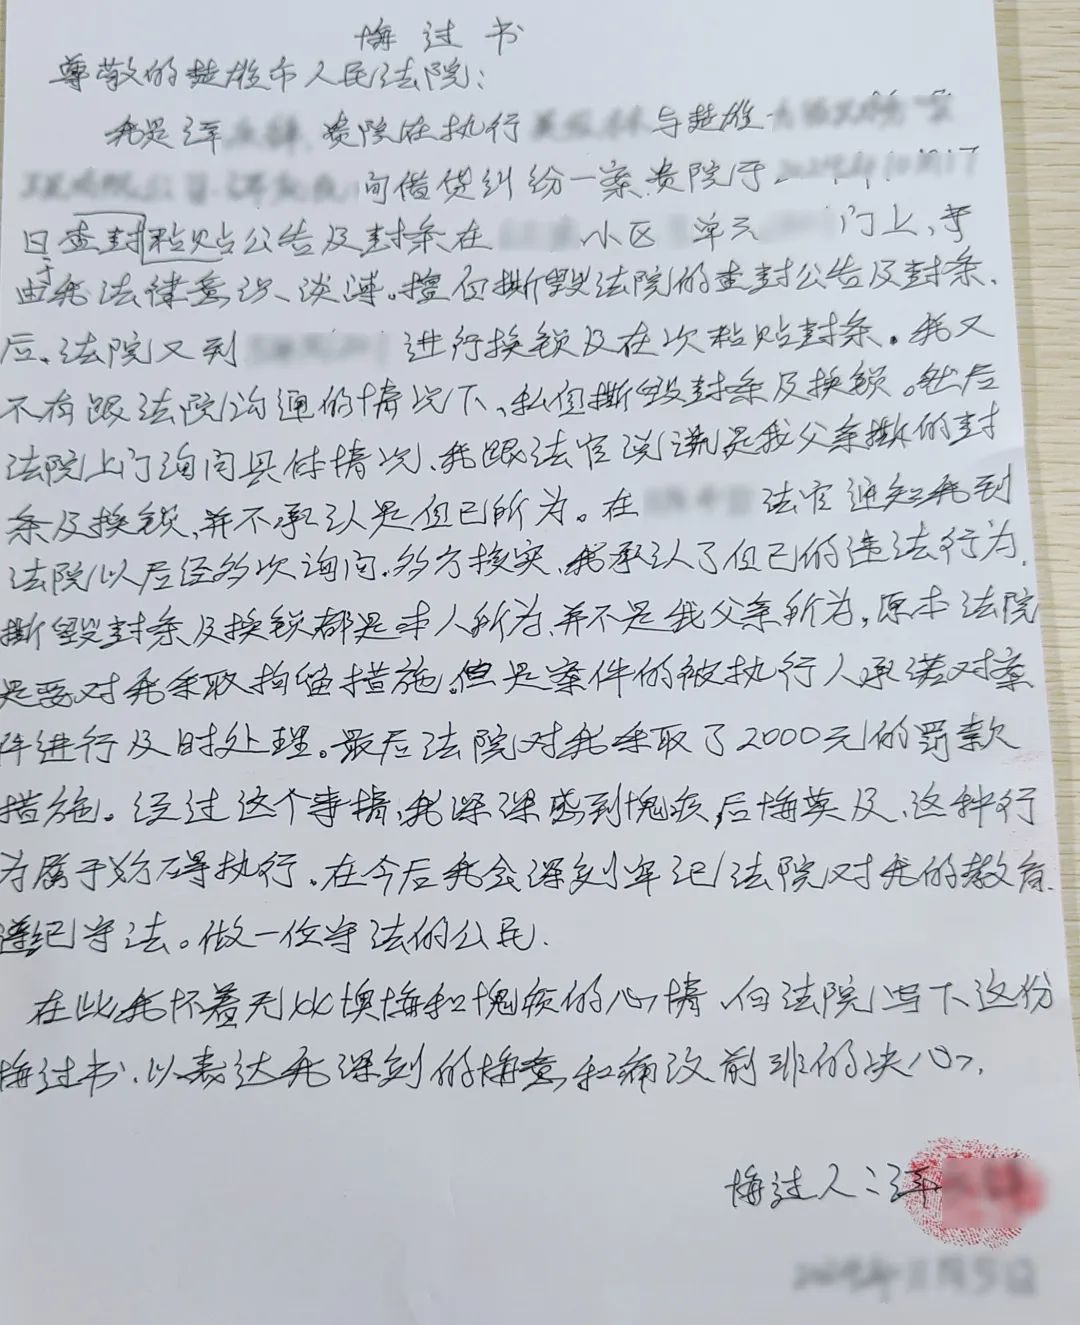 悔过书
尊敬的楚雄市人民法院：
我是 贵院在执行 与楚雄
间借贷纠纷一案，贵院于
日查封粘贴公告及封条在 小区 单元 门上，于
由我法律意识、淡薄。擅自撕毁法院的查封公告及封条、
后、法院又到 进行换锁及在次粘贴封条。我又
不有跟法院沟通的情况下、私自撕毁封条及换锁。然后
法院上门询问具体情况、我跟法官说谎是我父亲撕的封
条及换锁、并不承认是自己所为。在 法官通知我到
法院以后经多次询问，多方核实，我承认了自己的违法行为，
撕毁封条及换锁都是本人所为、并不是我父亲所为，原本法院
是要对我采取拘留措施，但是案件的被执行人承诺对案
件进行及时处理。最后法院对我采取了2000元的罚款
措施。经过这个事情，我深深感到愧疚，后悔莫及、这种行
为属于妨碍执行。在今后我会深刻牢记法院对我的教育，
遵纪守法。做一位守法的公民.
在此我怀着无比懊悔和愧疚的心情，向法院写下这份
悔过书、以表达我深刻的悔意和痛改前非的决心。
悔过人：